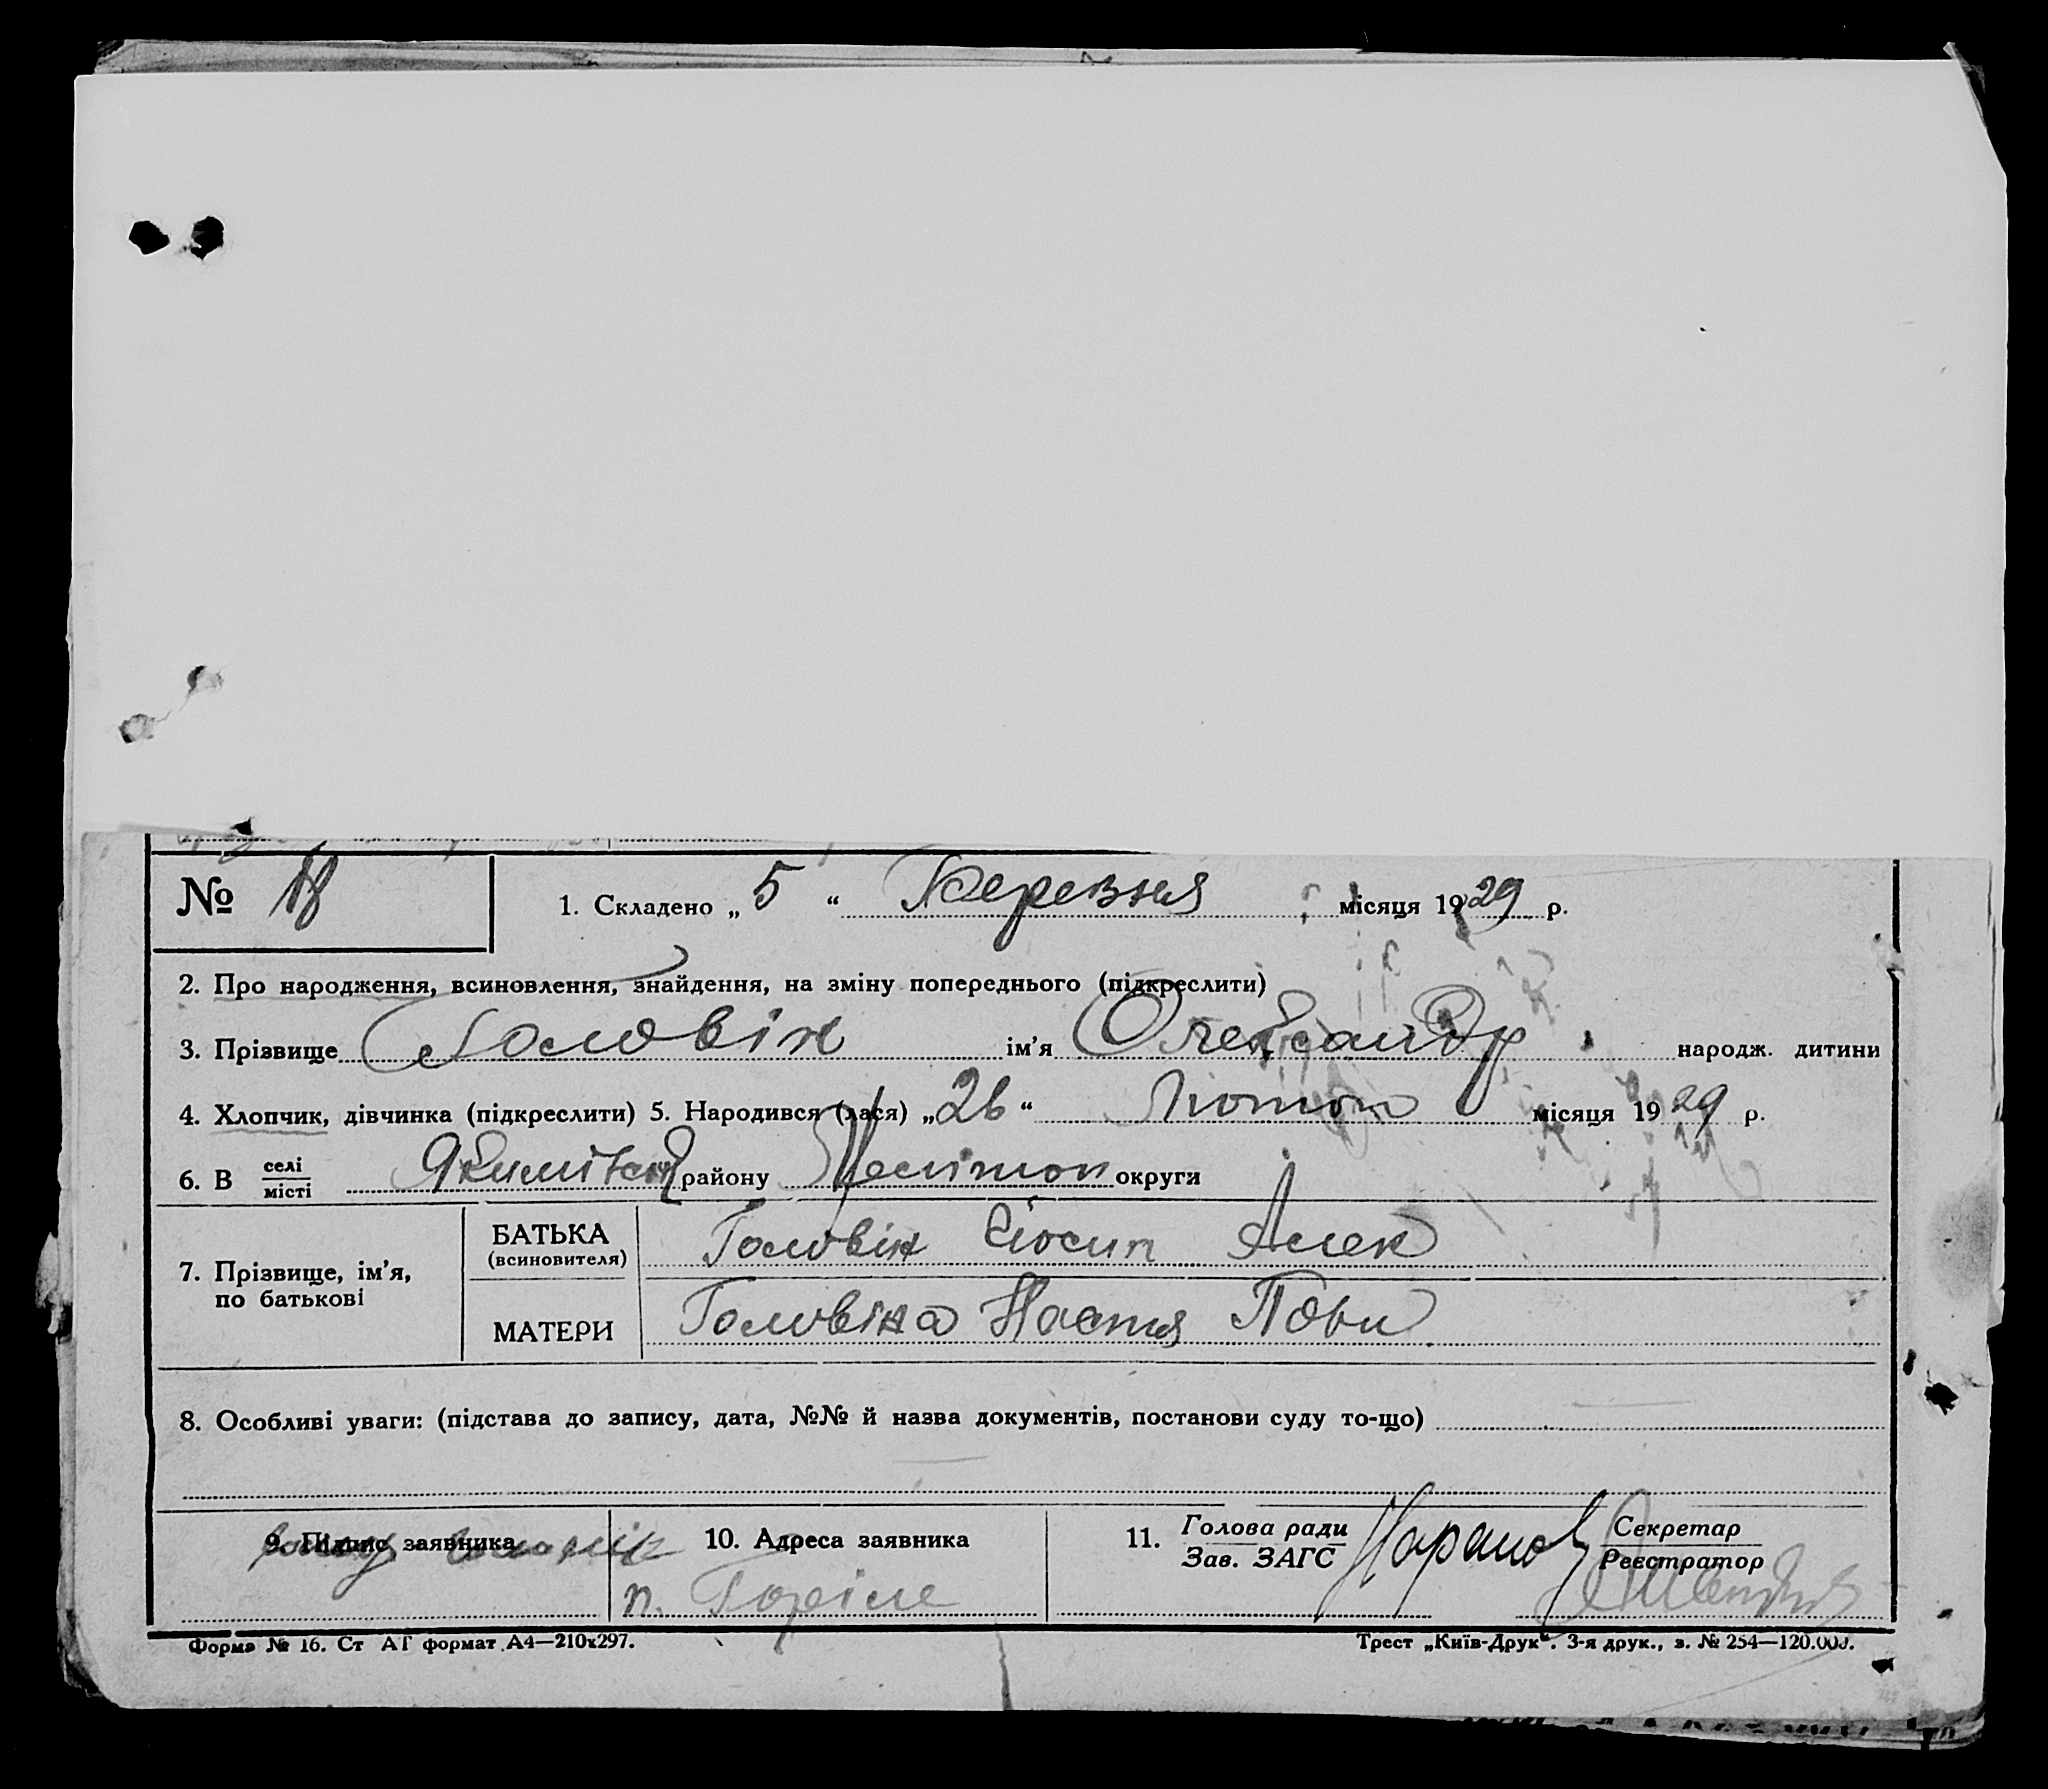 № 18
1. Складено „ 5 “ Березня місяця 1929 р.
2. Про народження, всиновлення, знайдення, на зміну попереднього (підкреслити)
3. Прізвище Головін ім’я Олександр народж. дитини
4. Хлопчик, дівчинка (підкреслити) 5. Народився (лася) „26“ Лютого місяця 1929 р.
6. В селі
місті Якимівськ району Мелітоп округи
7. Прізвище, ім’я,
по батькові
БАТЬКА
(всиновителя) Головін Йосип Алек
МАТЕРИ Головіна Настя
8. Особливі уваги: (підстава до запису, дата, №№ й назва документів, постанови суду то-що)
9. Підпис заявника
10. Адреса заявника
п. Горіле
11. Голова ради
Зав. ЗАГС
Секретар
Реєстратор
Форма № 16. Ст АТ формат А4—210х297.
Трест „Київ-Друк“. 3-я друк., з. № 254—120.000.